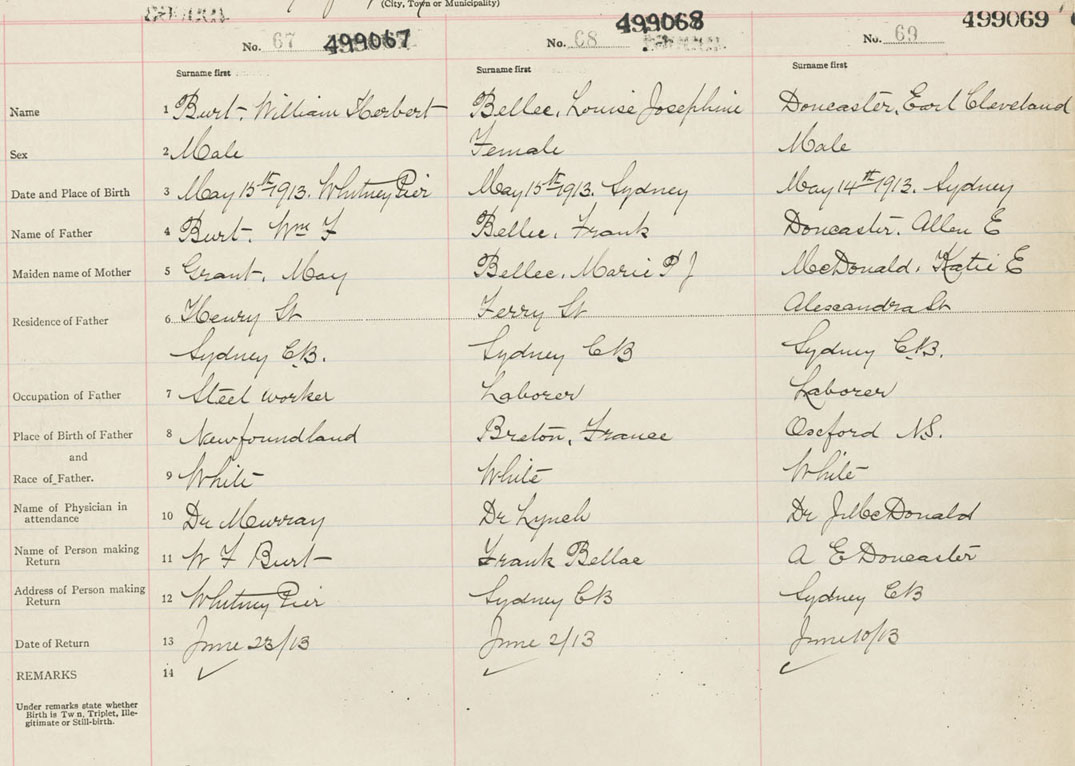 (City, Town or Municipality)
No. 67 499067 No. 68 499068 No. 69 499069
Surname first Surname first Surname first
Name 1 Burt, William Herbert Bellec, Louise Josephine Doncaster, Earl Cleveland
Sex 2 Male Female Male
Date and Place of Birth 3 May 15th 1913. Whitney Pier May 15th 1913. Sydney May 14th 1913. Sydney
Name of Father 4 Burt, Wm F Bellec, Frank Doncaster, Allen E
Maiden name of Mother 5 Grant, May Bellec, Marie P J McDonald, Katie E
Residence of Father 6 Henry St Ferry St Alexandra St
Sydney C.B. Sydney CB Sydney C.B.
Occupation of Father 7 Steel worker Laborer Laborer
Place of Birth of Father 8 Newfoundland Breton, France Oxford N.S.
and
Race of Father. 9 White White White
Name of Physician in attendance 10 Dr Murray Dr Lynch Dr J McDonald
Name of Person making Return 11 W F Burt Frank Bellec A E Doncaster
Address of Person making Return 12 Whitney Pier Sydney CB Sydney CB
Date of Return 13 June 23/13 June 2/13 June 10/13
REMARKS 14
Under remarks state whether
Birth is Tw n, Triplet, Ille-
gitimate or Still-birth.